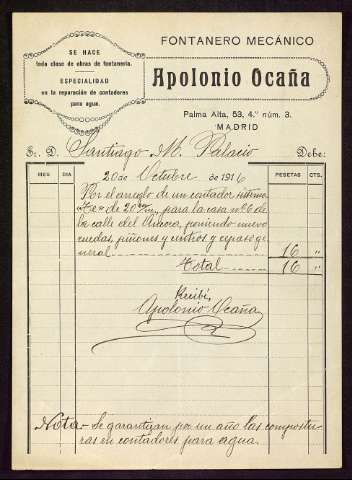 FONTANERO MECÁNICO
SE HACE
toda clase de obras de fontanería.
ESPECIALIDAD
en la reparación de contadores
para agua.
Apolonio Ocaña
Palma Alta, 53, 4.º núm. 3.
MADRID
Sr. D. Santiago M. Palacio Debe:
MES DIA PESETAS CTS.
20 de Octubre de 1916
Por el arreglo de un contador sistema
de 20 m/m para la casa nº 6 de
la calle del Amor, poniendo nuevo
ruedas, piñones y centros y repaso ge-
neral 16 "
Total 16 "
Recibí,
Apolonio Ocaña
Nota - Se garantizan por un año las compostu-
ras en contadores para agua.